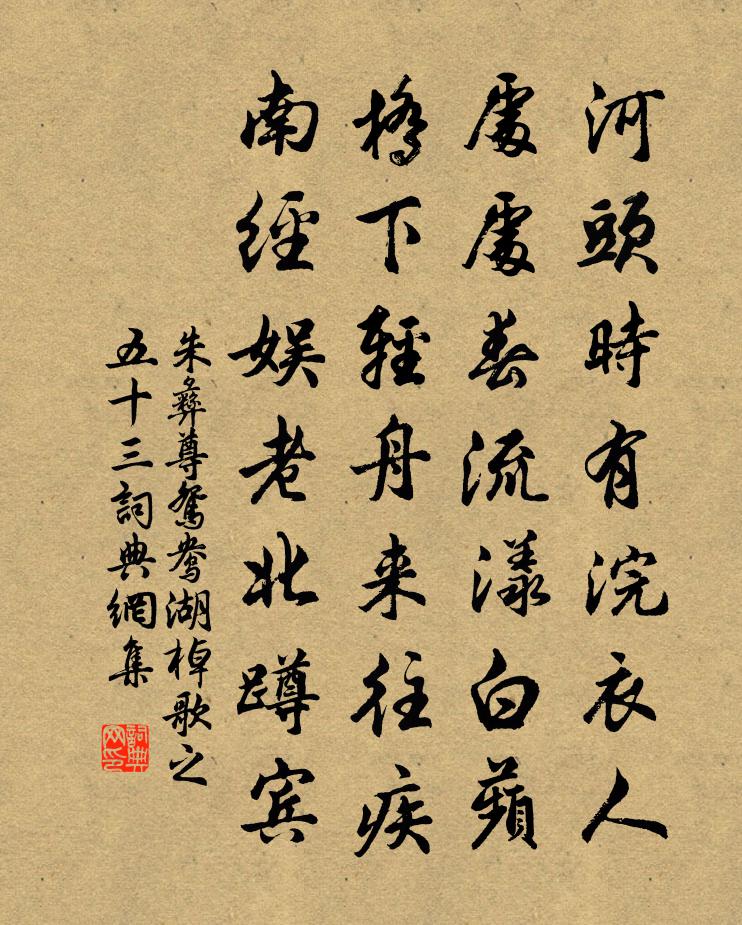 河頭時有浣衣人
處處春流漾白蘋
橋下輕舟来往疾
南經娱老北蹲宾
朱彝尊鴛鴦湖棹歌之
五十三詞典網集
詞典
网印